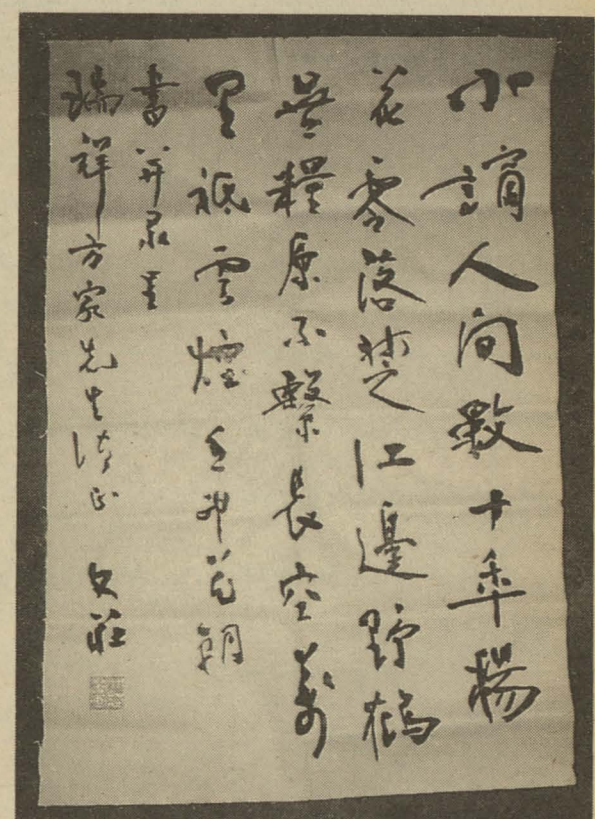 小謫人間數十年楊
花零落楚江邊野鶴
無糧原不繫長空萬
里祇雲煙 壬申花朝
書并录呈
瑞祥方家先生清正 文莊